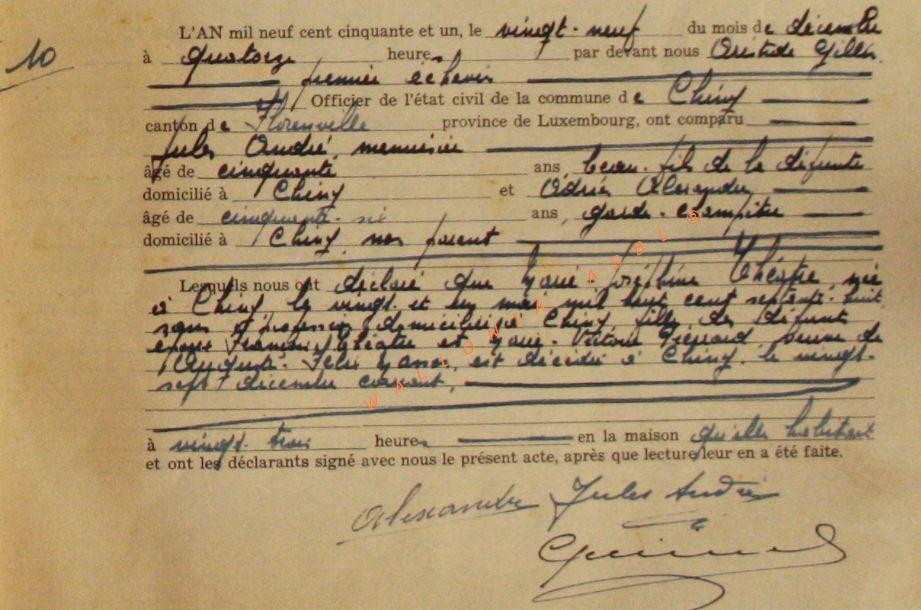 10
L'AN mil neuf cent cinquante et un, le vingt-neuf du mois de décembre
à quatorze heures par devant nous Aristide Gilles
premier échevin
Officier de l'état civil de la commune de Chiny
canton de Florenville province de Luxembourg, ont comparu
Jules André, menuisier
âgé de cinquante ans beau-fils de la défunte
domicilié à Chiny et Adrien Alexandre
âgé de cinquante-six ans, garde-champêtre
domicilié à Chiny, non parent
Lesquels nous ont déclaré que Marie Joséphine née
à Chiny, le vingt et un mai mil huit cent septante-huit
sans profession domiciliée à Chiny fille des défunts
époux François et Marie-Victoire veuve de
Auguste-Félix est décédée à Chiny, le vingt-
sept décembre courant,
à vingt-trois heures en la maison qu'elle habitait
et ont les déclarants signé avec nous le présent acte, après que lecture leur en a été faite.
Alexandre Jules André
WALLONIA ASBL ©